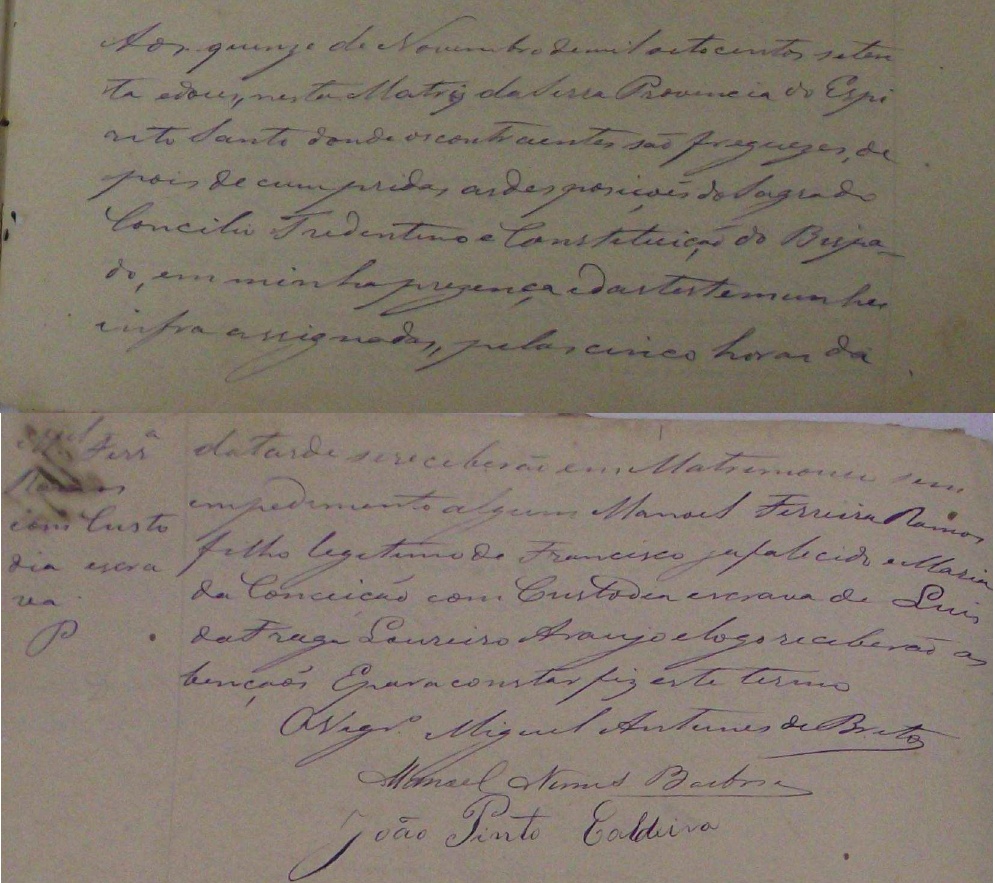 Aos quinze de Novembro de mil oitocentos seten
ta edous, nesta Matriz da Serra Provincia do Espi
rito Santo donde os contraentes são freguezes, de
pois de cumpridas as desposições do Sagrado
Concilio Tredentino e Constituição do Bispa-
do, em minha prezença e das testemunhas
infra assignadas, pelas cinco horas da
el Ferrª
Ramos
com Custo
dia escra
va
P
da tarde se receberão em Matrimonio sem
empedimento algum Manoel Ferreira Ramos
filho legitimo de Francisco ja falecido e Maria
da Conceição com Custodia escrava de Luis
da Fraga Loureiro Araujo e logo receberão as
bençaõs E para constar fiz este termo
O Vigrº Miguel Antunes de Brito
Manoel Nunes Barbosa
João Pinto Caldeira